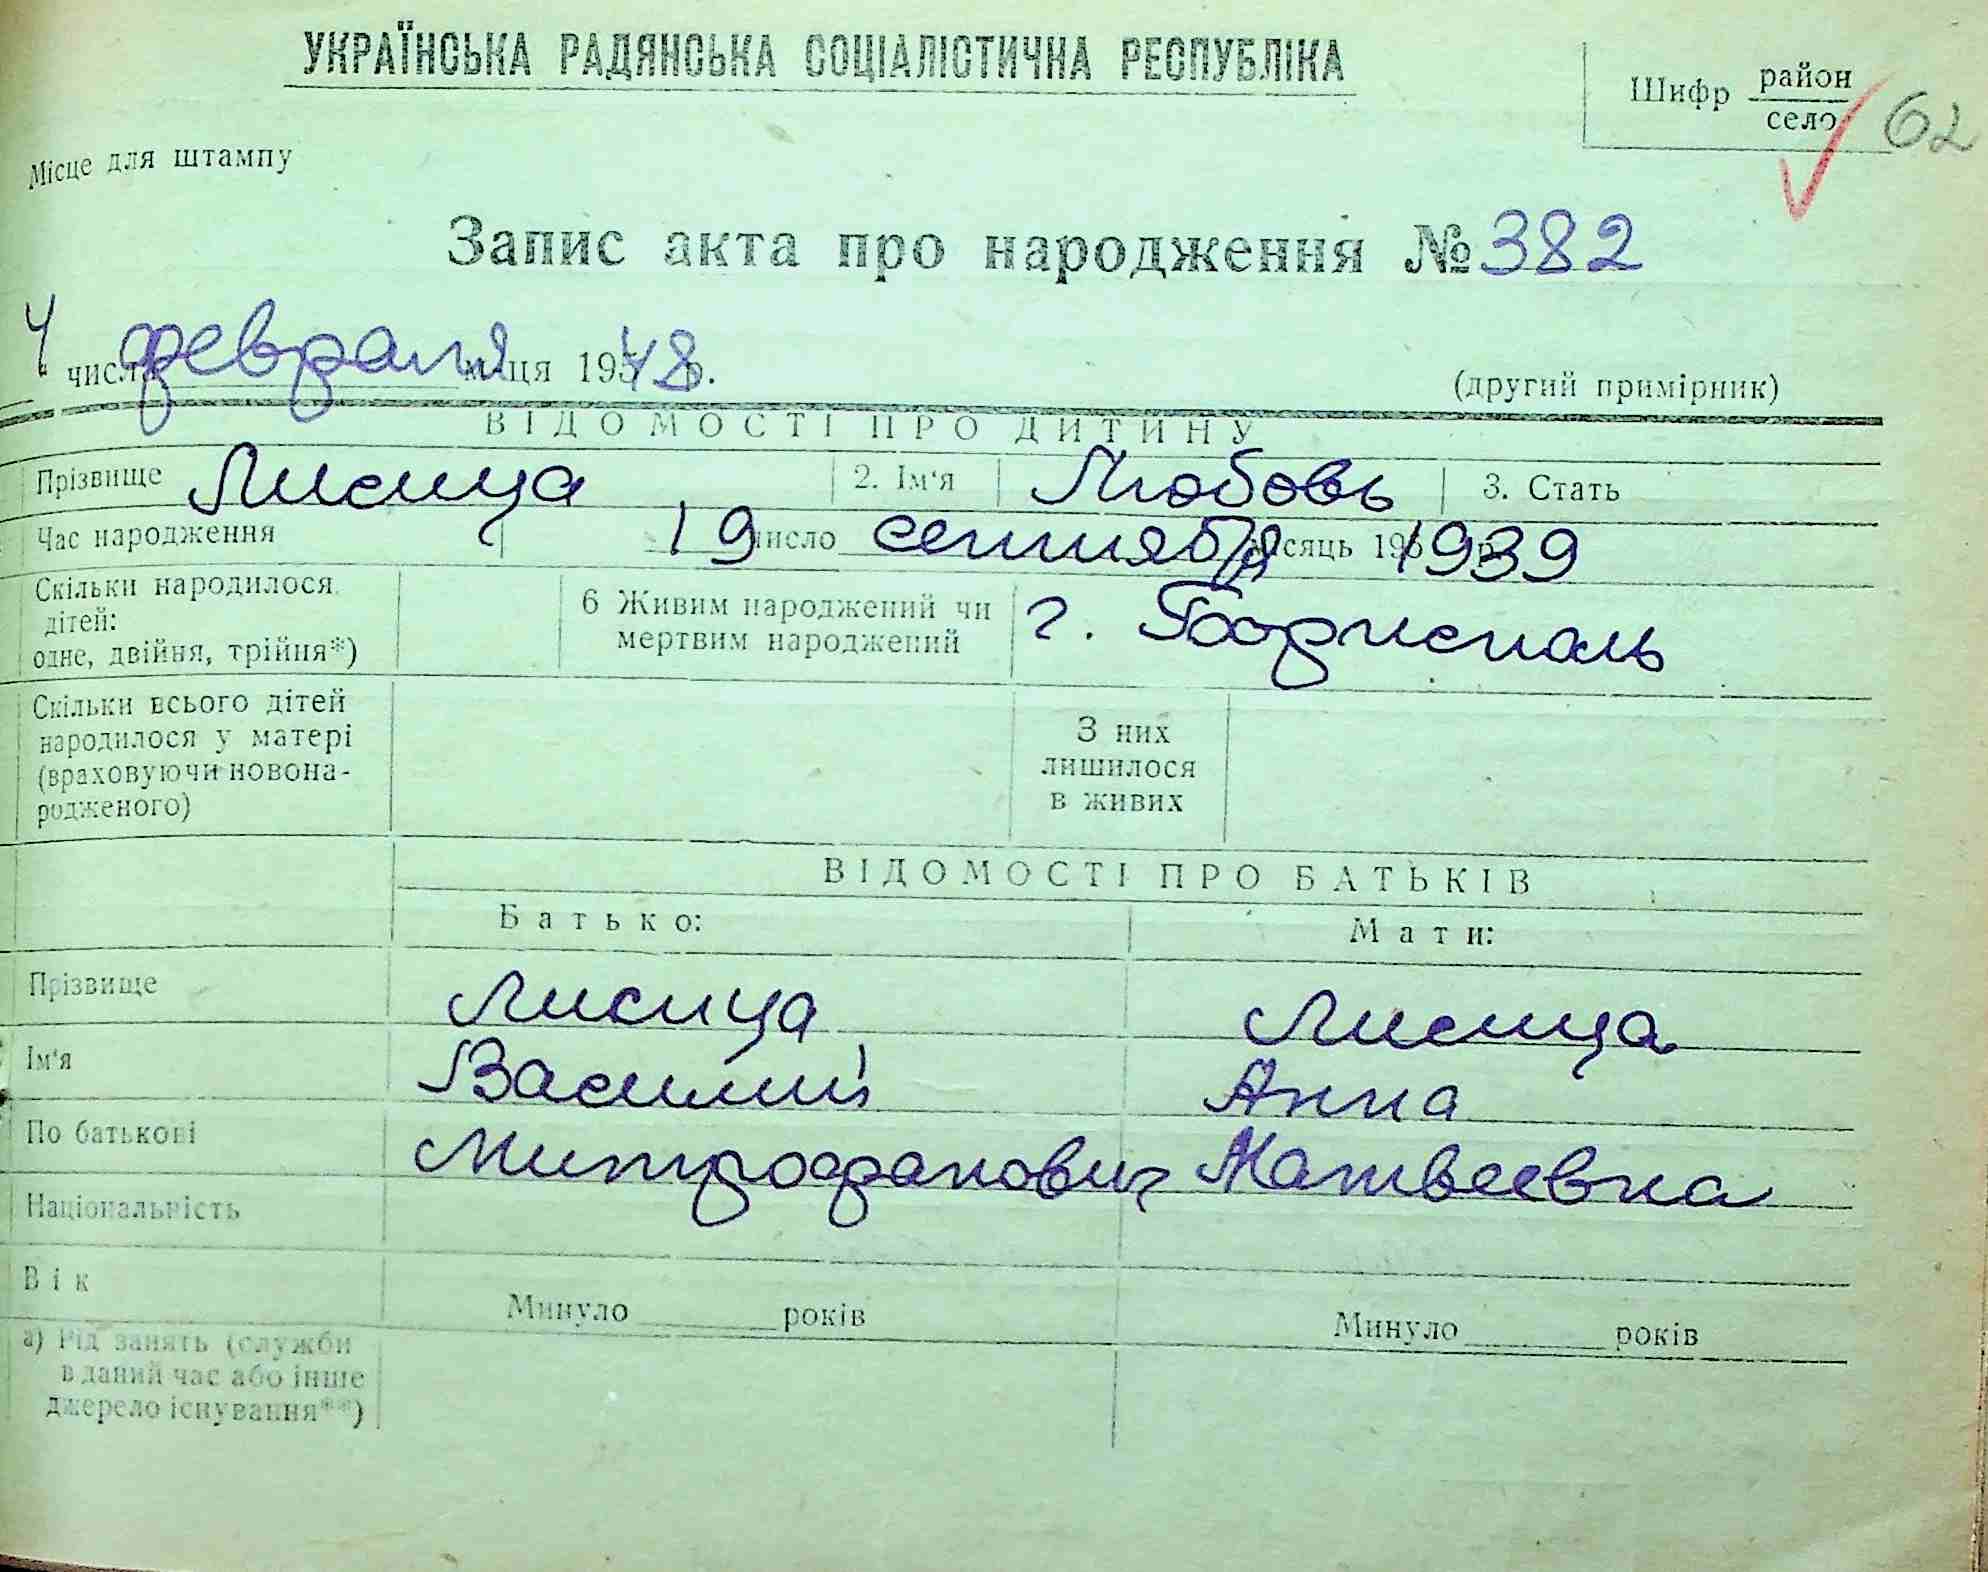 УКРАЇНСЬКА РАДЯНСЬКА СОЦІАЛІСТИЧНА РЕСПУБЛІКА
Шифр район
село 62
Місце для штампу
Запис акта про народження № 382
4 числа февраля місяця 1948 р.
(другий примірник)
ВІДОМОСТІ ПРО ДИТИНУ
Прізвище Лисица 2. Ім'я Любовь 3. Стать
Час народження 19 число сентября місяць 1939
Скільки народилося дітей: одне, двійня, трійня*)
6 Живим народжений чи мертвим народжений г. Борисполь
Скільки всього дітей народилося у матері (враховуючи новона-родженого)
З них лишилося в живих
ВІДОМОСТІ ПРО БАТЬКІВ
Батько: Мати:
Прізвище Лисица Лисица
Ім'я Василий Анна
По батькові Митрофанович Матвеевна
Національність
Вік Минуло ______ років Минуло ______ років
а) Рід занять (служби в даний час або інше джерело існування**)